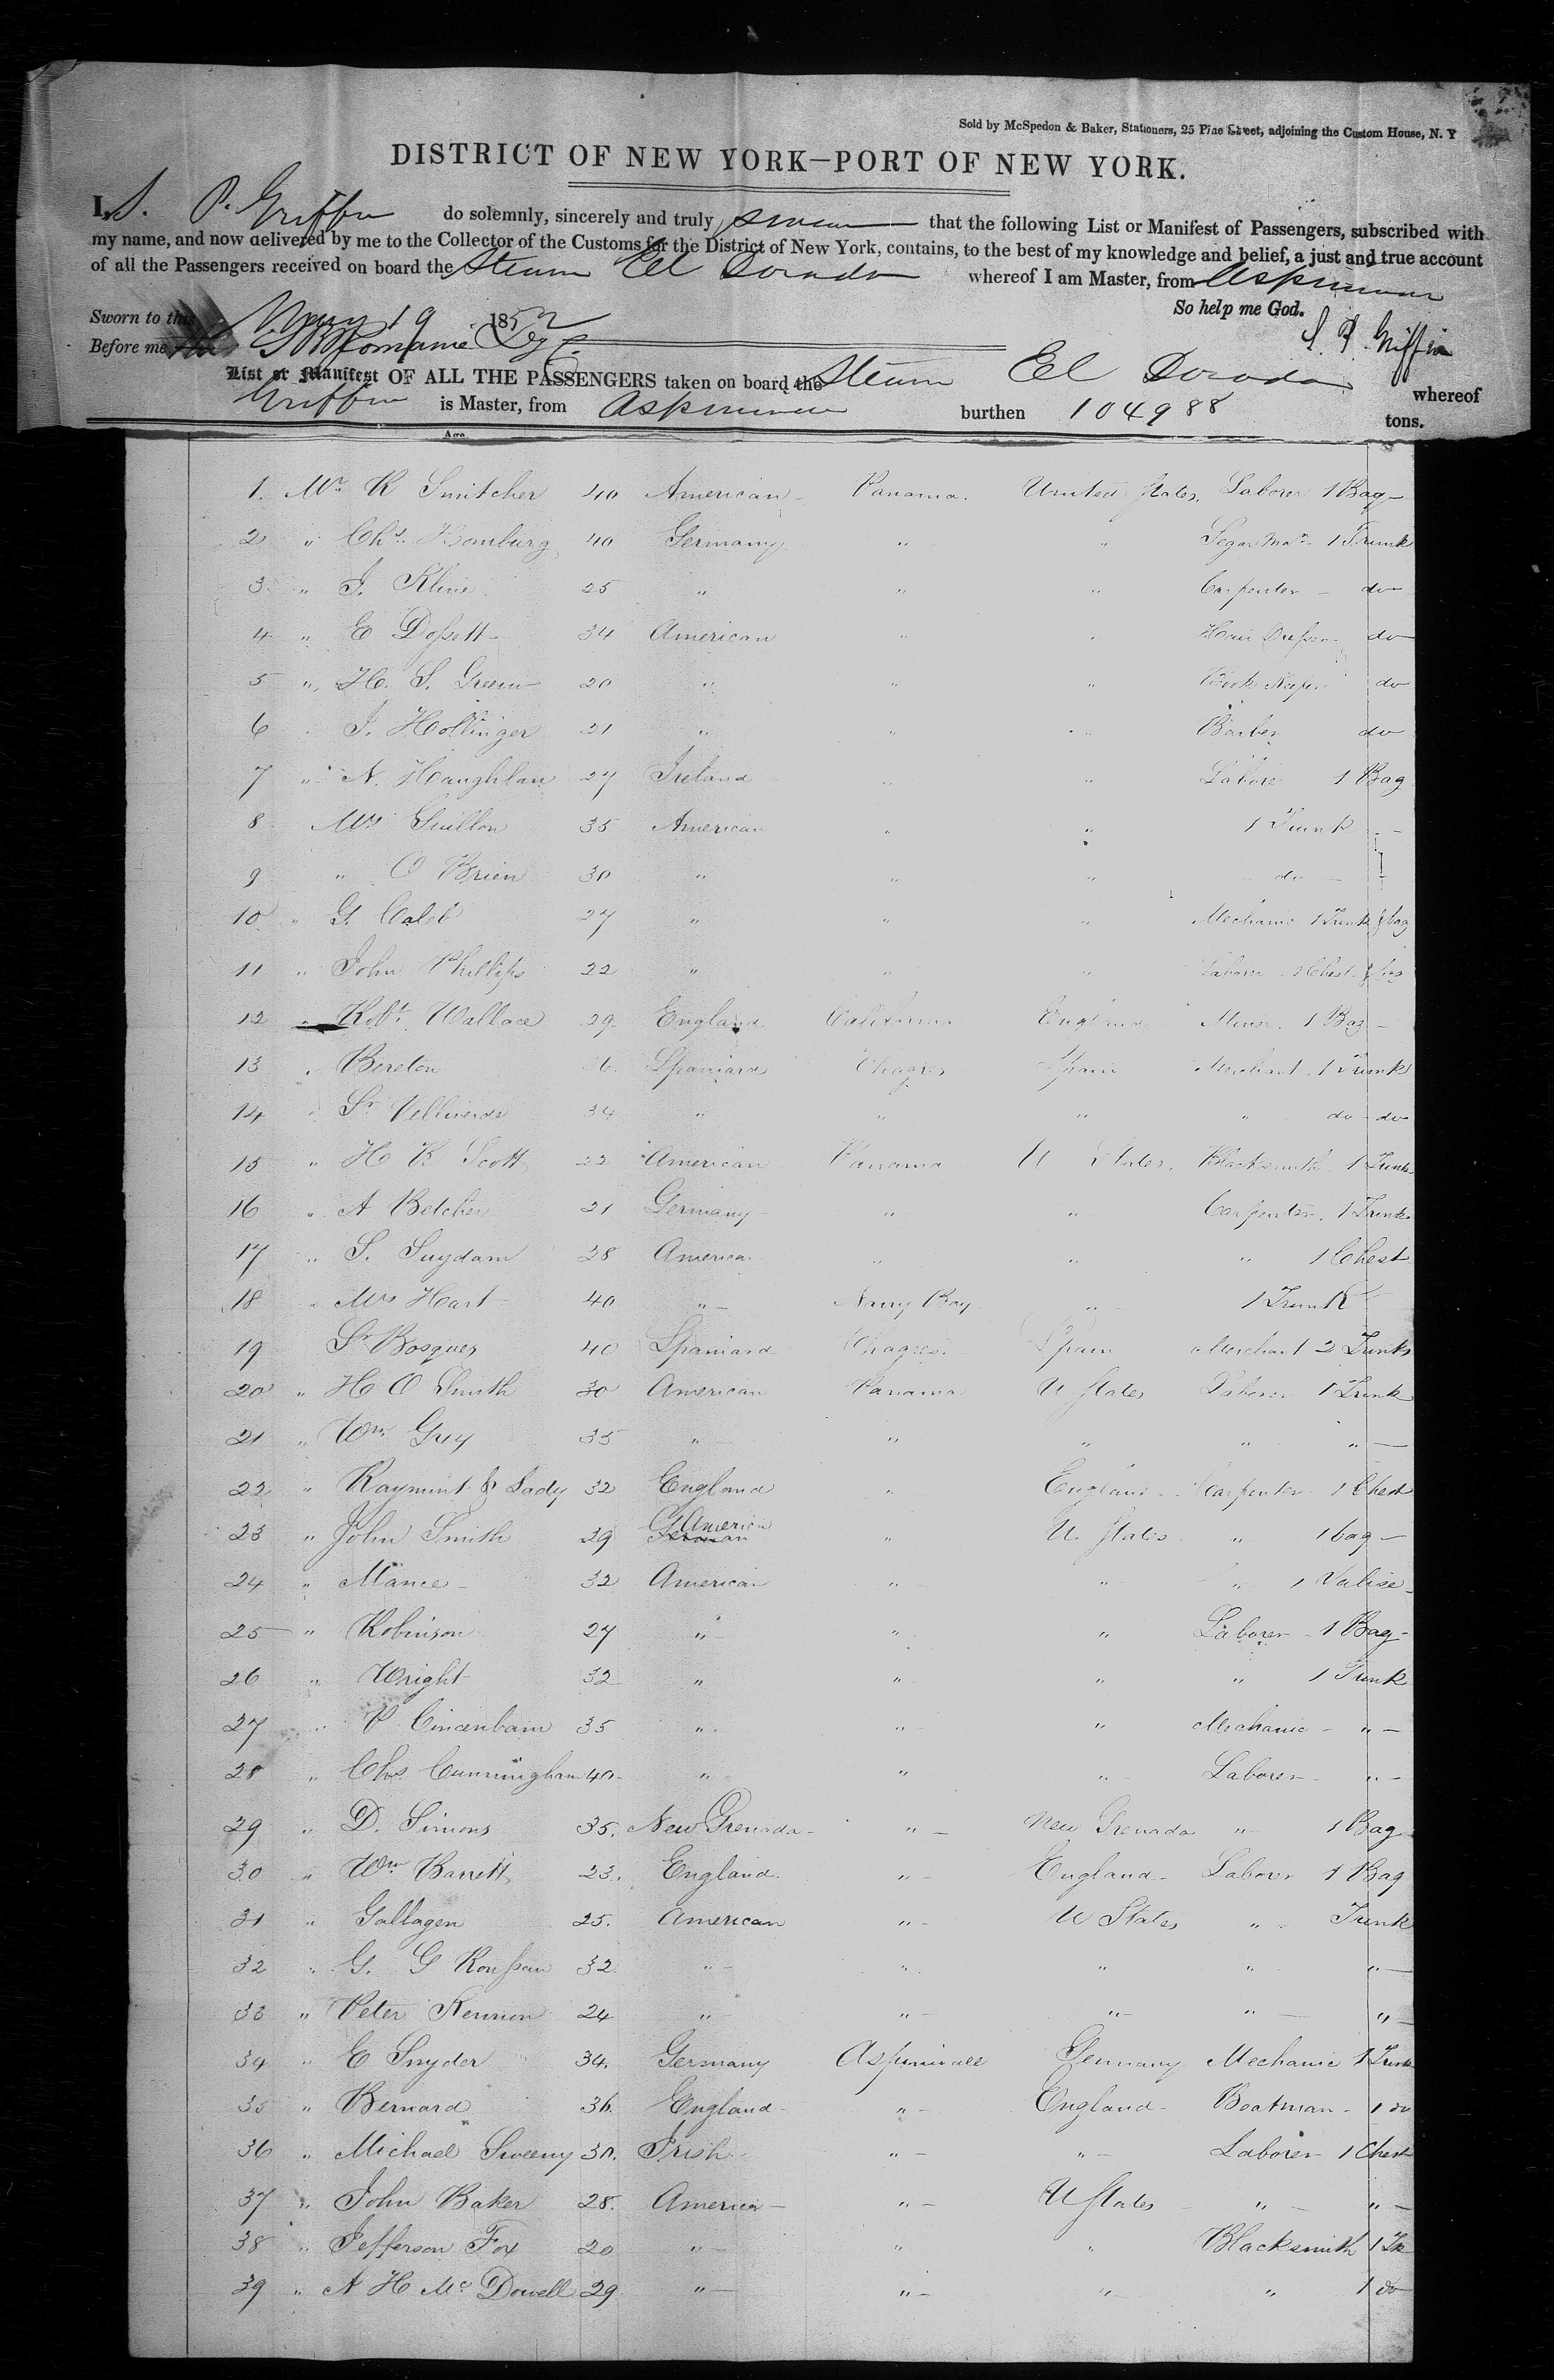 Sold by McSpedon & Baker, Stationers, 25 Pine Street, adjoining the Custom House, N. Y
DISTRICT OF NEW YORK—PORT OF NEW YORK.
I, S. P. Griffin do solemnly, sincerely and truly swear that the following List or Manifest of Passengers, subscribed with
my name, and now delivered by me to the Collector of the Customs for the District of New York, contains, to the best of my knowledge and belief, a just and true account
of all the Passengers received on board the Steam El Dorado whereof I am Master, from Aspinwall
So help me God.
Sworn to this May 19 1852
S. P. Griffin
Before me
List or Manifest OF ALL THE PASSENGERS taken on board the Steam El Dorado whereof
Griffin is Master, from Aspinwall burthen 1049 88 tons.
Age
1. Mr. R Smitcher 40 American - Panama. United States. Laborer 1 Bag -
2 " Chs. Homburg 40 Germany " " Segar Mar. 1 Trunk
3 " J. Kline 25 " " " Carpenter - do
4 " E Dossett - 34 American " " Hair Dresser - do
5 " H. S. Green 20 " " " Book Keeper do
6 J. Hollinger 21 " " " Barber do
7 " N. Haughlan 27 Ireland " " Laborer 1 Bag
8 Mrs Guillon 35 American " " 1 Trunk
9 " O Brien 30 " " " do
10 " G. Caleb 27 " " " Mechanic 1 Trunk & bag
11 " John Phillips 22 " " " Laborer 1 Chest & bag
12 " Robt. Wallace 29 England California England Miner. 1 Bag -
13 " Bereton 36. Spaniard Chagres Spain Merchant. 1 Trunk
14 " Sr Velliverde 34 " " " " do do
15 " H R Scott 22 American Panama U States. Blacksmith 1 Trunk
16 " A Betcher 21 Germany " " Carpenter. 1 Trunk
17 " S. Suydam 28 America " " " 1 Chest
18 " Mrs Hart 40 " Navy Bay " 1 Trunk
19 Sr Bosques 40 Spaniard Chagres. Spain Merchant 2 Trunks
20 " H O Smith 30 American Panama U States Laborer 1 Trunk
21 " Wm Guy 35 " " " " "
22 " Rayment & Lady 32 England " England - Carpenter 1 Chest
23 " John Smith 29 America German " U. States " 1 bag -
24 " Mance - 32 American " " " 1 Valise -
25 " Robinson 27 " " " Laborer - 1 Bag -
26 " Wright 32 " " " " 1 Trunk
27 " P Cincenbaim 35 " " " Mechanic - " -
28 " Chs Cunningham 40 - " " " Laborer - " -
29 " D. Simons 35. New Grenada - " - New Grenada " 1 Bag
30 " Wm Barrett 23. England. " - England - Laborer 1 Bag
31 " Gallagen 25. American " - U States " Trunk
32 " G. G Roussau 32. " " " " "
33 " Peter Kennon 24 " " " " "
34 " E Snyder 34. Germany Aspinwall Germany Mechanic 1 Trunk
35 " Bernard 36. England - " - England - Boatman - 1 do
36 " Michael Sweeny 30. Irish " - " - Laborer 1 Chest
37 " John Baker 28. America - " - U States " " -
38 " Jefferson Fox 20 " " " Blacksmith 1 Tk
39 " A H McDowell 29 " " - " " 1 do